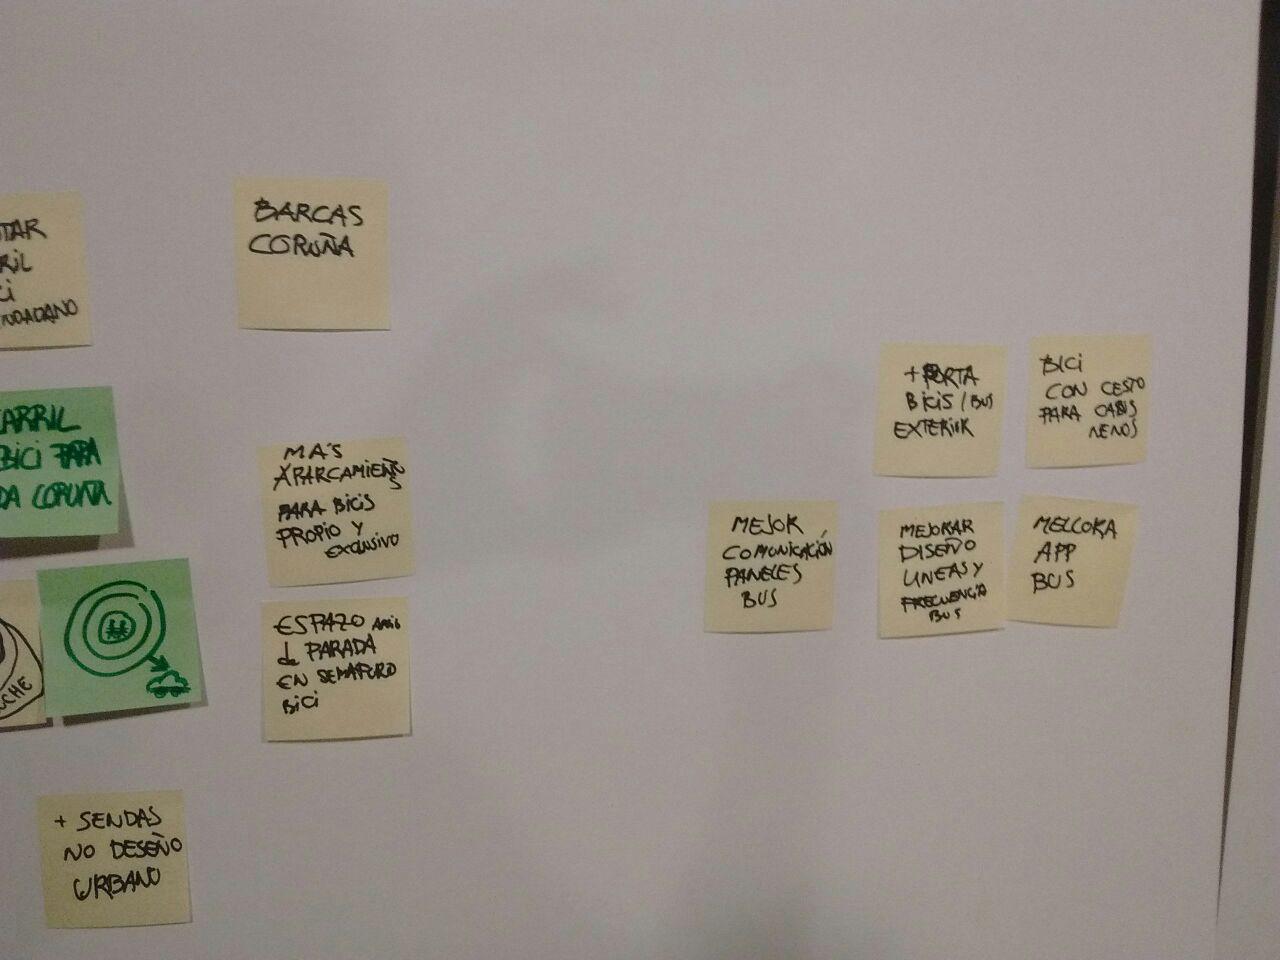 TAR
RIL
CI
UDADANO
BARCAS
CORUÑA
ARRIL
BICI PARA
DA CORUÑA
MÁS
APARCAMIENTOS
PARA BICIS
PROPIO Y
EXCLUSIVO
CHE
ESPAZO
de PARADA
EN SEMAFORO
BICI
+ SENDAS
NO DESEÑO
URBANO
+ PORTA
BICIS / BUS
EXTERIOR
BICI
CON CESTO
PARA CANS
NENOS
MEJOR
COMUNICACIÓN
PANELES
BUS
MEJORAR
DISEÑO
LINEAS Y
FRECUENCIA
BUS
MELLORA
APP
BUS